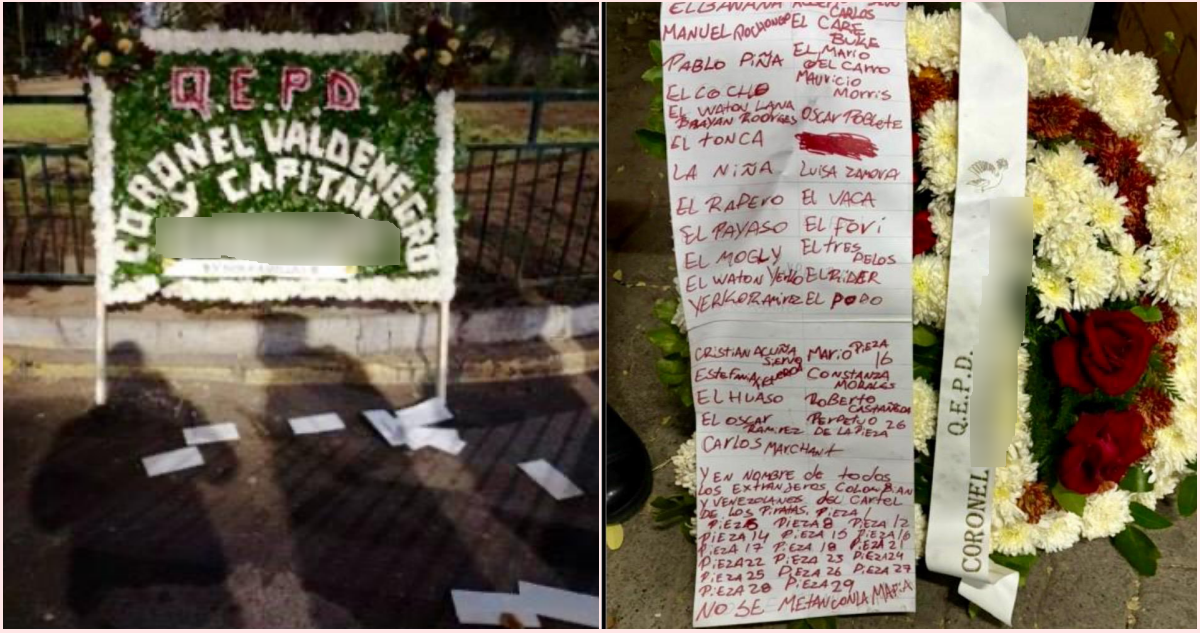 Q.E.P.D.
CORONEL VALDENEGRO
Y CAPITAN
EL BANANA
CARLOS
MANUEL
EL CARE
BUKE
PABLO PIÑA
EL MARIO
DEL CARRO
EL COCHO
MAURICIO
MORRIS
EL WATON LANA
BRAYAN
OSCAR POBLETE
EL TONCA
LA NIÑA LUISA ZAMORA
EL RAPERO EL VACA
EL PAYASO EL FORI
EL MOGLY EL TRES
PELOS
EL WATON YERKO EL RIDER
YERKO RAMIREZ EL PODO
CRISTIAN ACUÑA MARIO PIEZA
16
CONSTANZA
MORALES
EL HUASO ROBERTO
CASTAÑEDA
EL OSCAR PERPETUO 26
RAMIREZ DE LA PIEZA
CARLOS MARCHANT
Y EN NOMBRE de todos
LOS EXTRANJEROS, COLOMBIAN
Y VENEZOLANOS DEL CARTEL
DE LOS PIRATAS. PIEZA 1
PIEZA 8 PIEZA 12
PIEZA 14 PIEZA 15 PIEZA 16
PIEZA 17 PIEZA 18 PIEZA 21
PIEZA 22 PIEZA 23 PIEZA 24
PIEZA 25 PIEZA 26 PIEZA 27
PIEZA 28 PIEZA 29
NO SE METAN CON LA MAFIA
Q.E.P.D.
CORONEL